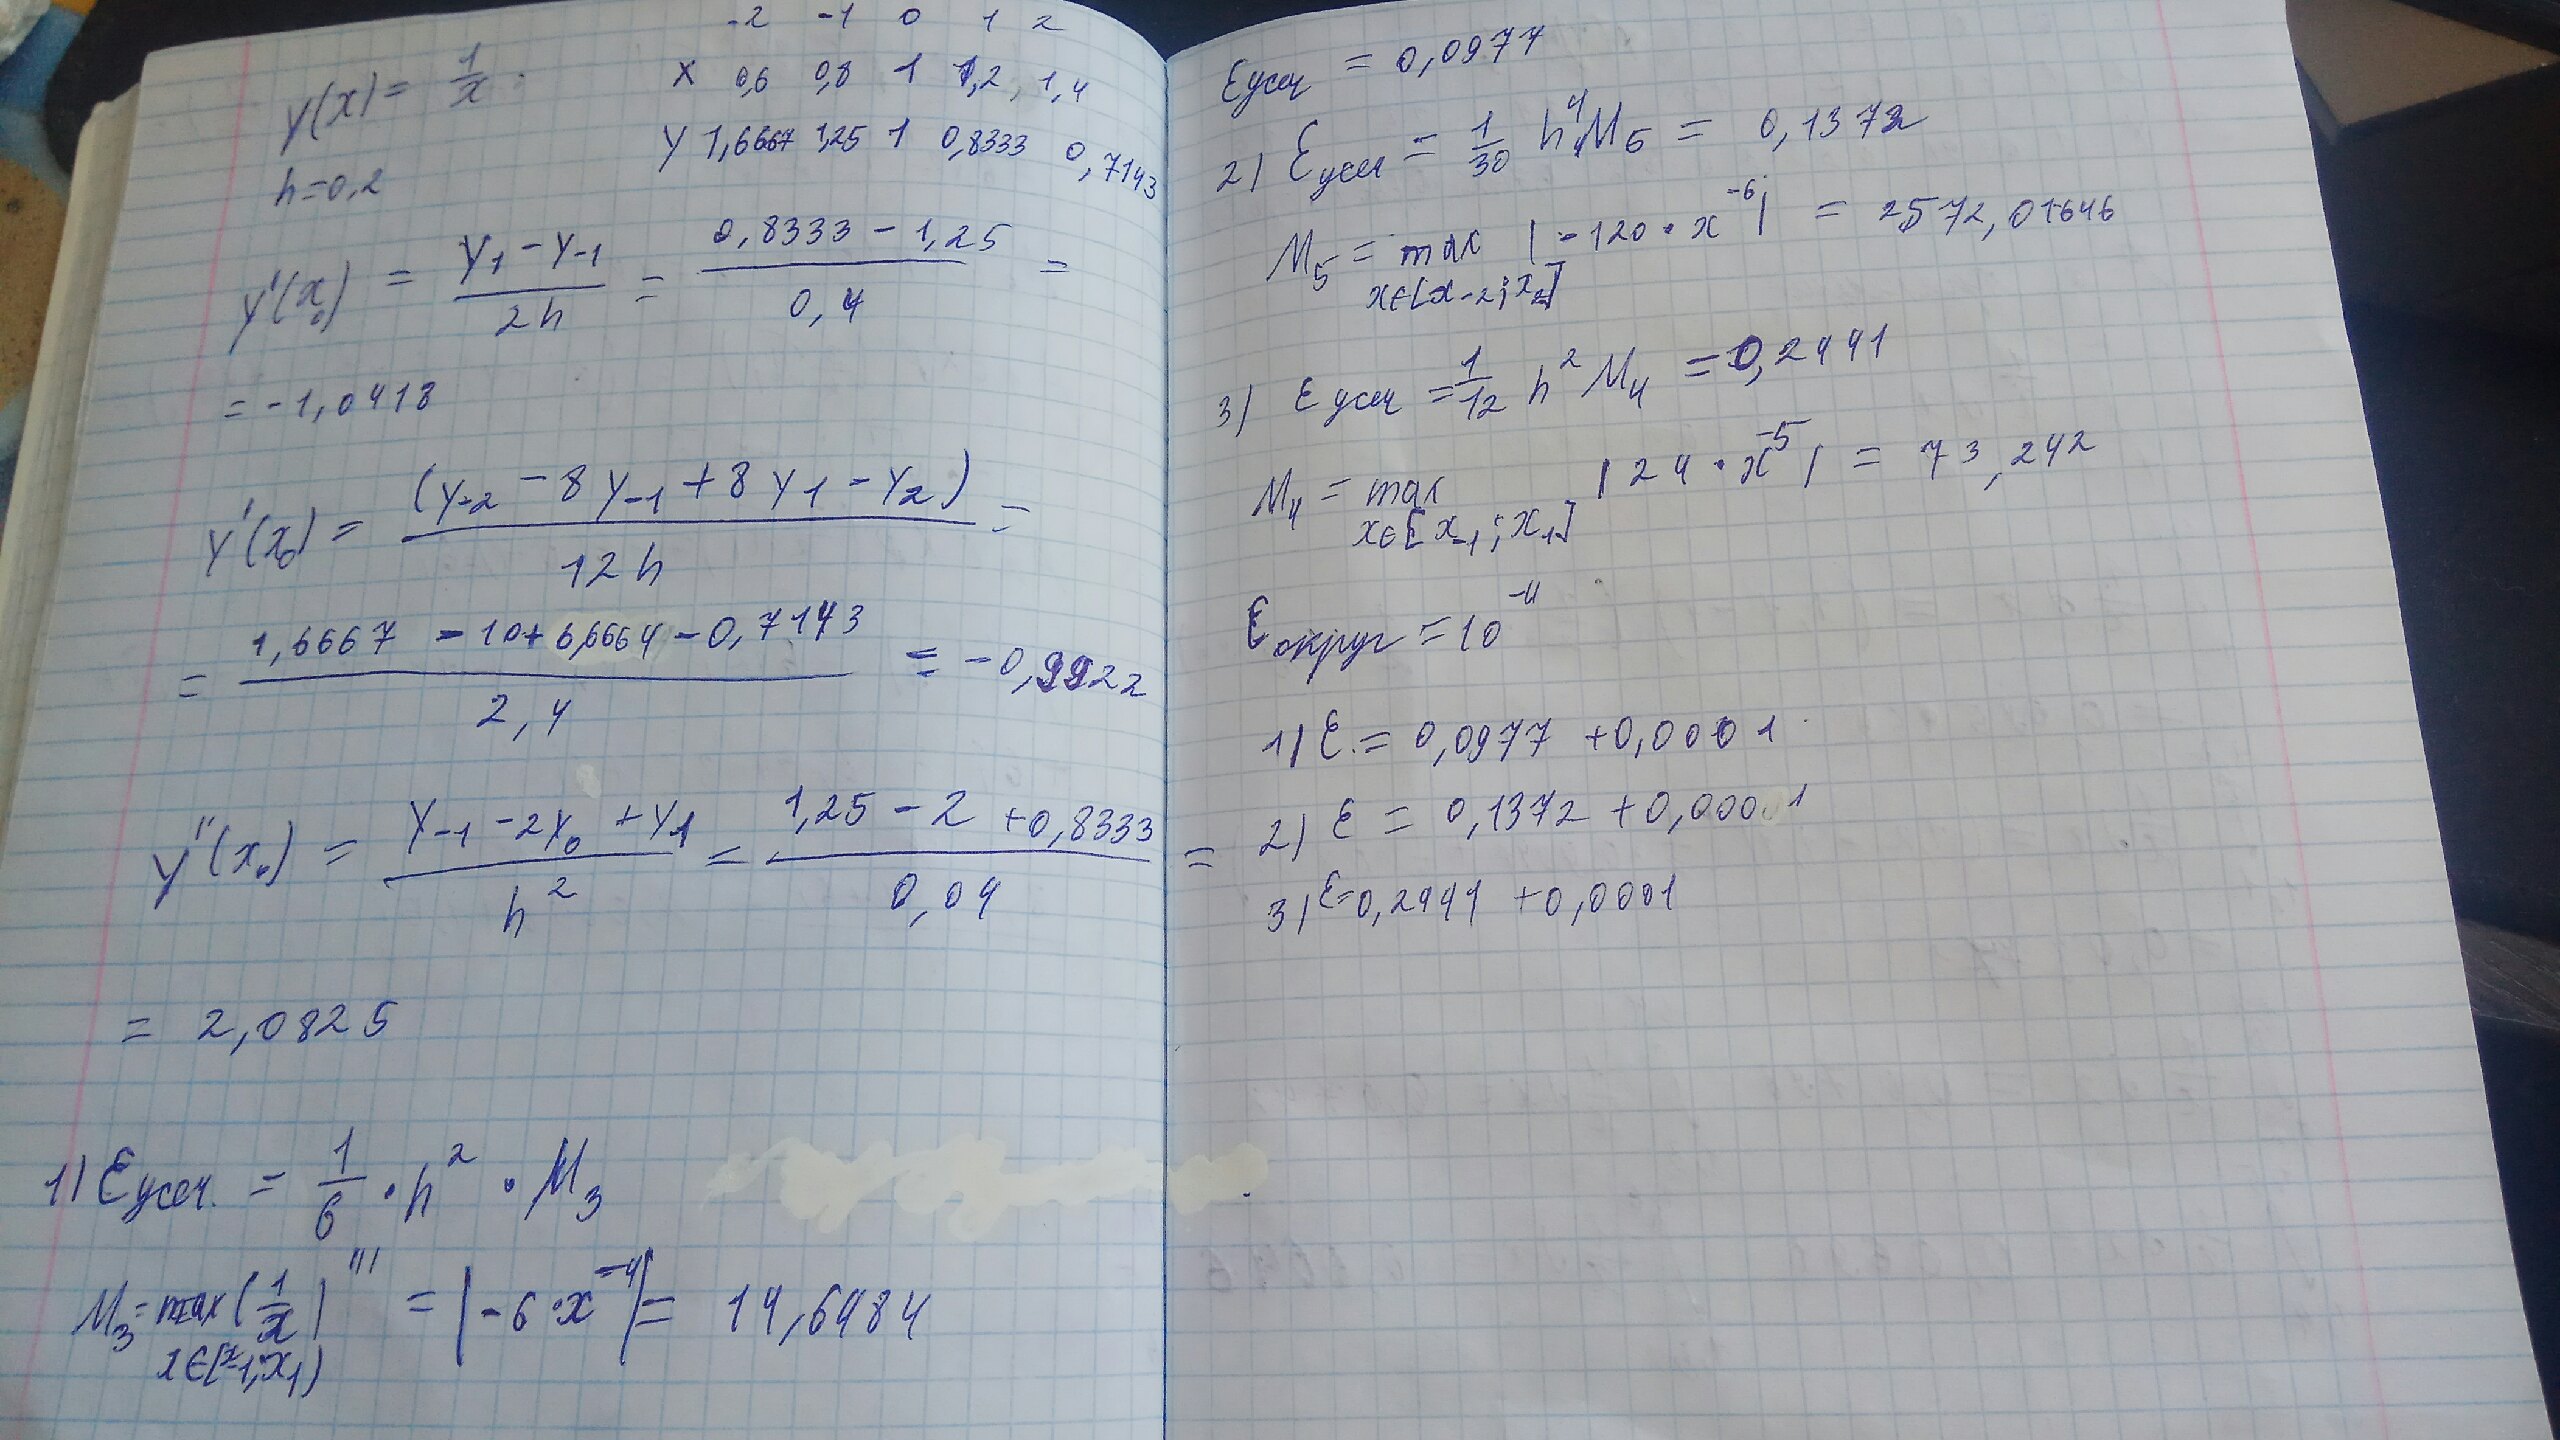 -2 -1 0 1 2
y(x) = 1/x .
x 0,6 0,8 1 1,2 1,4
y 1,6667 1,25 1 0,8333 0,7143
h=0,2
y'(x₀) = (y₁ - y₋₁)/(2h) = (0,8333 - 1,25)/(0,4) =
= -1,0418
y'(x₀) = (y₋₂ - 8y₋₁ + 8y₁ - y₂)/(12h) =
= (1,6667 - 10 + 6,6664 - 0,7143)/(2,4) = -0,9922
y''(x₀) = (y₋₁ - 2y₀ + y₁)/(h²) = (1,25 - 2 + 0,8333)/(0,04) =
= 2,0825
1) Eусеч. = 1/6 · h² · M₃
M₃ = max (1/x)''' = |-6·x⁻⁴| = 14,6484
x∈[x₋₁;x₁]
Eусеч = 0,0977
2) Eусеч = 1/30 h⁴M₅ = 0,1372
M₅ = max |-120·x⁻⁶| = 2572,01646
x∈[x₋₂;x₂]
3) Eусеч = 1/12 h² M₄ = 0,2441
M₄ = max |24·x⁻⁵| = 73,242
x∈[x₋₁;x₁]
Eокруг = 10⁻⁴
1) E = 0,0977 + 0,0001
2) E = 0,1372 + 0,0001
3) E = 0,2441 + 0,0001